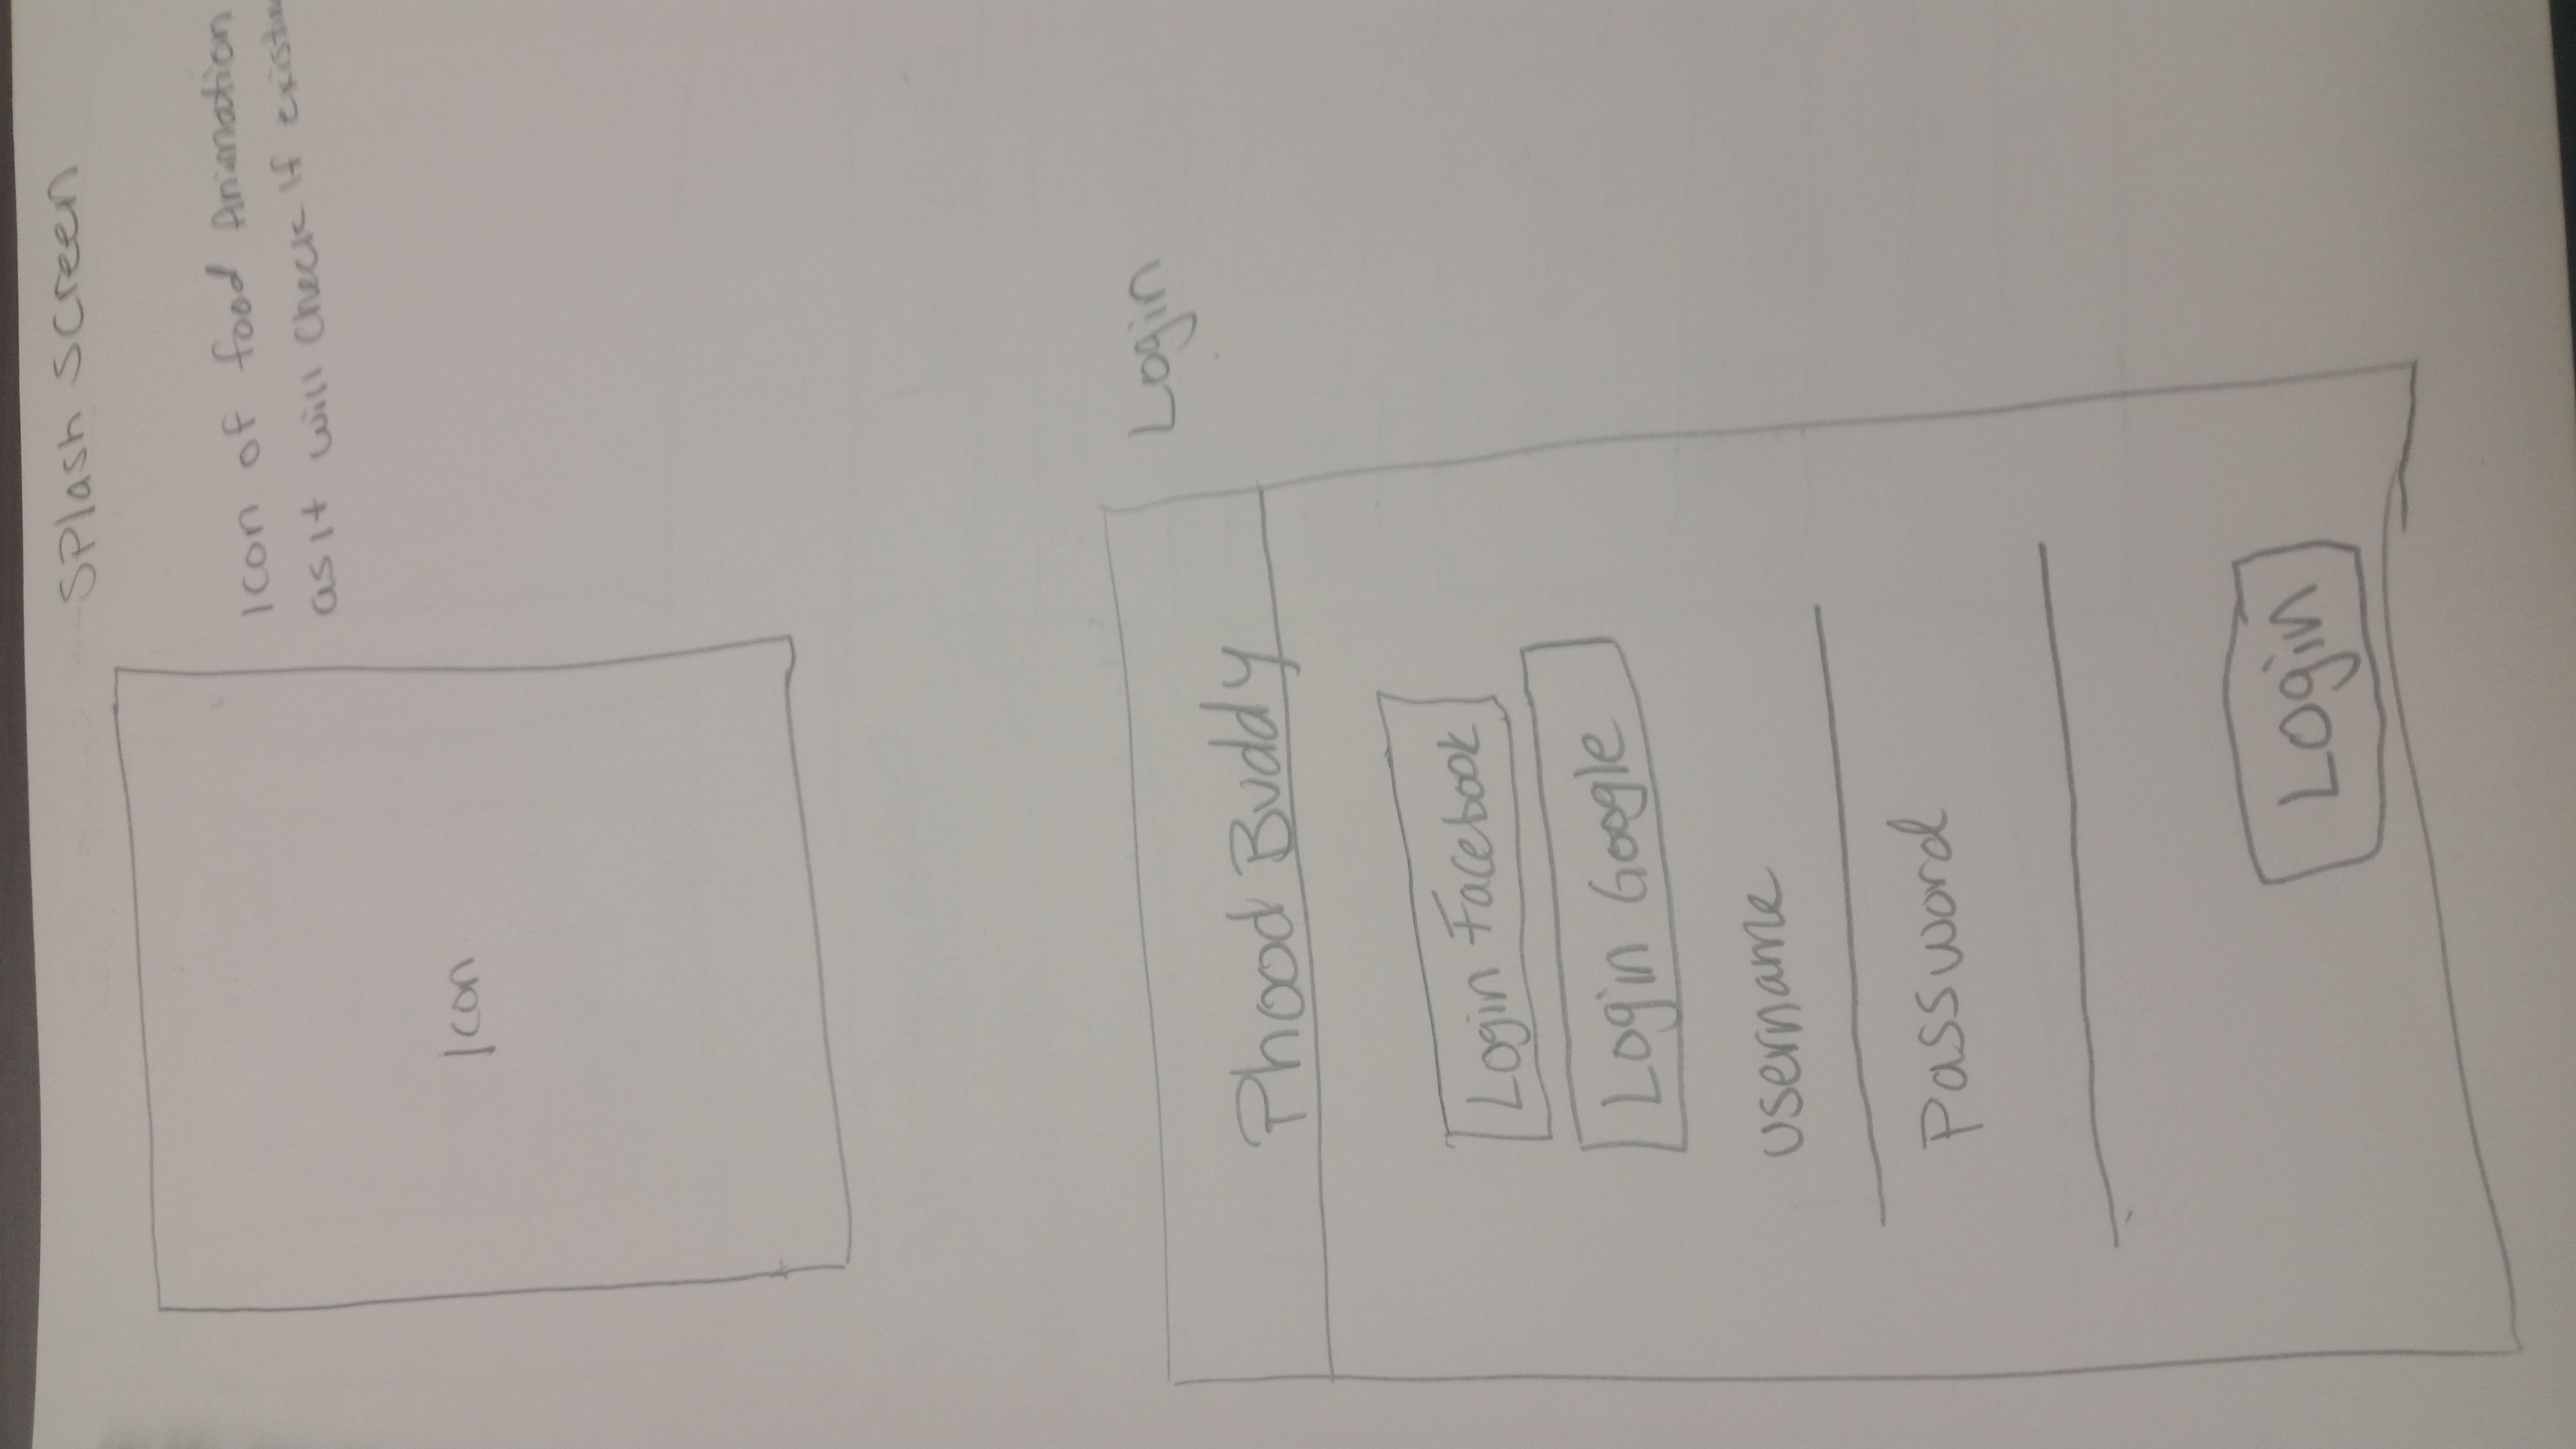 Splash Screen
Icon of food Animation
as it will check if
Icon
Login
Phood Buddy
Login Facebook
Login Google
username
Password
Login